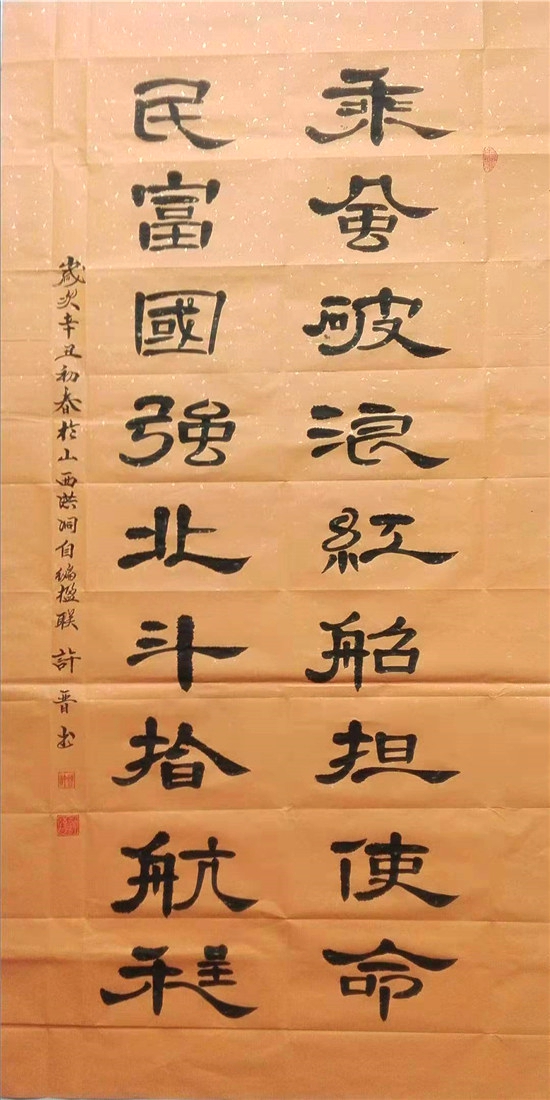 乘風破浪紅船担使命
民富國強北斗指航程
歲次辛丑初春於山西洪洞自編楹联 許晋书